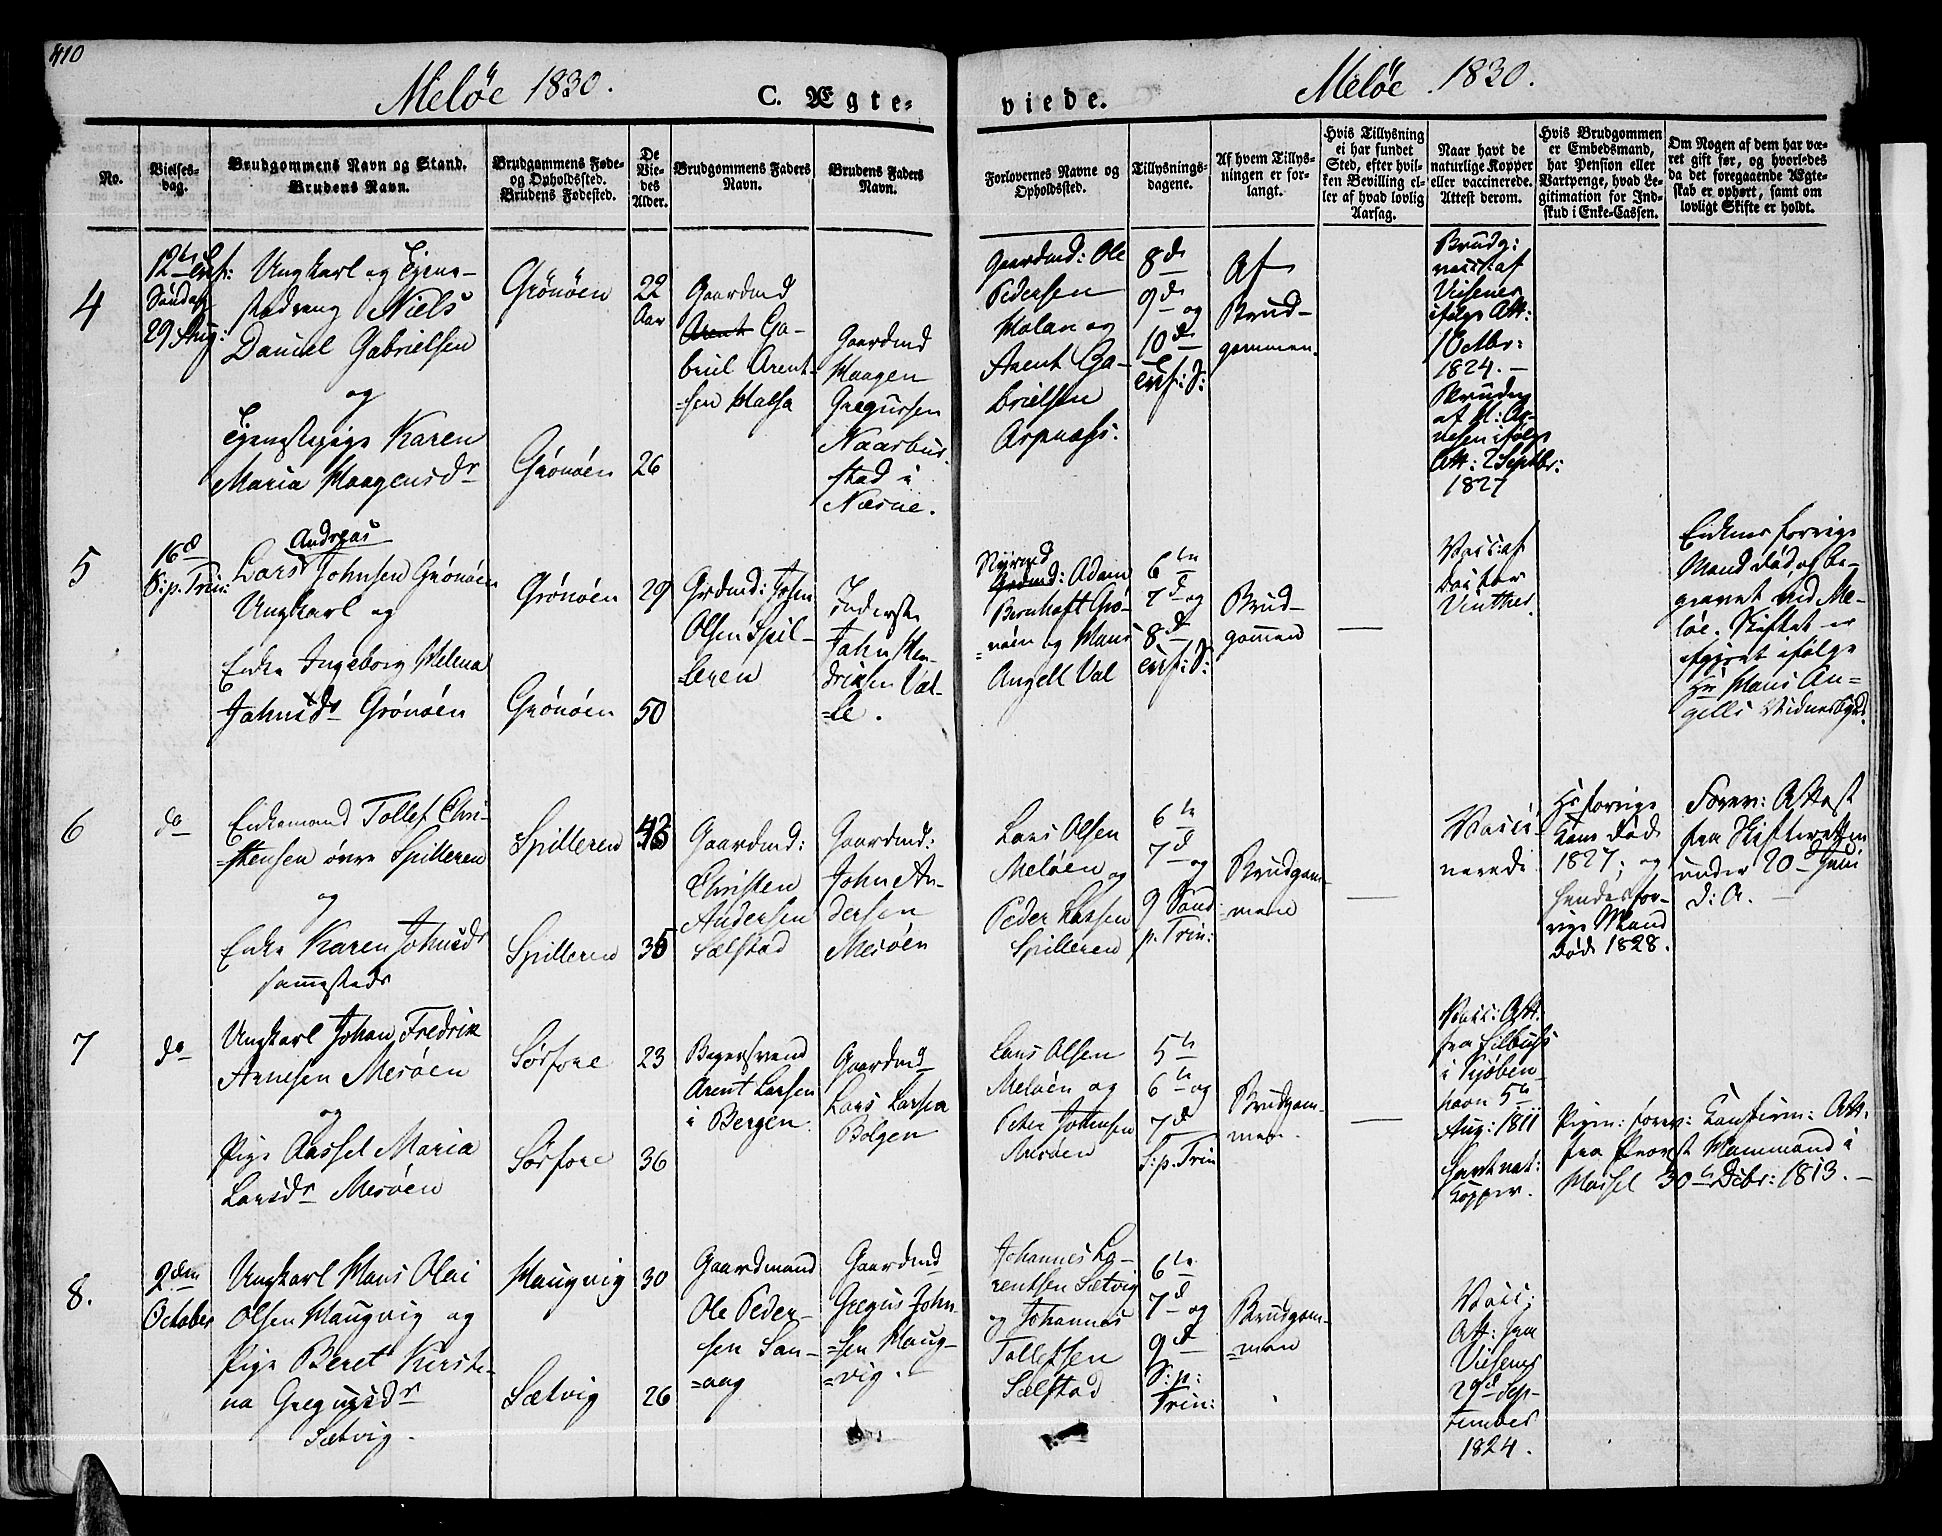 410
Meløe 1830.
C. Ægte-
viede.
Meløe 1830.
No.
Vielses-
dag.
Brudgommens Navn og Stand.
Brudens Navn.
Brudgommens Føde-
og Opholdssted.
Brudens Fødested.
De
Vie-
des
Alder.
Brudgommens Faders
Navn.
Brudens Faders
Navn.
Forlovernes Navne og
Opholdssted.
Tillysnings-
dagene.
Af hvem Tillys-
ningen er for-
langt.
Hvis Tillysning
ei har fundet
Sted, efter hvil-
ken Bevilling el-
ler af hvad lovlig
Aarsag.
Naar havt de
naturlige Kopper
eller vaccinerede.
Attest derom.
Hvis Brudgommen
er Embedsmand,
har Pension eller
Vartpenge, hvad Le-
gitimation for Ind-
skud i Enke-Cassen.
Om Nogen af dem har væ-
ret gift før, og hvorledes
da det foregaaende Ægte-
skab er ophørt, samt om
lovligt Skifte er holdt.
4
Søndag
29 Aug:
Ungkarl og Tjene-
stedreng Niels
Daniel Gabrielsen
og
Tjenestepige Karen
Maria Haagensdr
Grönöen
Grönöen
22
Aar
26
Gaardmd
Arent Ga-
briel Arent-
=sen Halsa
Gaardmd
Haagen
Gregussen
Naarbu-
stad i
Næsne.
Gaardmd: Ole
Pedersen
Holan og
Arent Ga-
brielsen
Aspnæss.
8de
9de og
10de
Af
Brud-
gommen.
Brudg:
vacc: af
ifølge Att:
1 Octbr:
1824. –
Bruden
ifølge
Att: 2 Septbr:
1827
5
16d
S: p. Trin:
Andreas
Lars Johnsen Grönöen
Ungkarl og
Enke Ingeborg Helena
Johnsdr Grönöen
Grönöen
Grönöen
29
50
Grdmd:
Olsen Spil-
leren
Inderst
John Hen-
driksen Val-
=le.
Adam
Bernhoft Grö-
=nöen og Hans
Angell Val
6te
7d og
8d
Brud-
gommen
Vacc: af
Doctor
Vinther.
Enkens forrige
Mand død og be-
gravet ved Me-
löe. Skiftet er
afgjort ifølge
Hr Hans An-
gells Vidnesbyrd.
6
do
Enkemand Tollef Chri-
=stensen övre Spilleren
og
Enke Karen Johnsdr
sammesteds
Spilleren
Spilleren
35
Gaardmd:
Christen
Andersen
Sælstad
Gaardmd:
John An-
dersen
Mesöen
Lars Olsen
Melöen og
Peder Larsen
Spilleren
6te
7d og
9 Sønd
p. Trin:
Brudgom-
men
Vacci-
nerede
Hs forrige
Kone død
1827, og
hendes for-
rige Mand
død 1828.
Forev: Attest
fra Skifteretten
under 20 Juni
d: A. –
7
do
Ungkarl Johan Fredrik
Arnesen Mesöen
og
Pige Aassel Maria
Larsdr Mesöen
Sörfore
Sörfore
23
36
Arent Larsen
i Bergen
Gaardmd
Lars Larsen
Bolgen
Lars Olsen
Melöen og
Peter Johnsen
Mesöen
5te
6te og
7d
S: p. Trin
Brudgom-
men.
Vacc: Att:
fra
i Kjöben-
havn 5te
Aug: 1811
havt nat:
Kopper.
Pigen: forev: Confirm: Att.
fra Provst Hammond i
Hassel 30te Dcbr: 1813. –
8.
2den
October
Ungkarl Hans Olai
Olsen Haugvig og
Pige Beret Kirsti-
na Gregusdr
Sætvig.
Haugvig
Sætvig
30
26
Gaardmand
Ole Peder-
sen San-
=aag
Gaardmd
Gregus John-
=sen Haug-
=vig.
Johannes Lo-
rentsen Sætvig
og Johannes
Tollefsen
Sælstad
6te
7d og
9d
S: p:
Trin:
Brudgom-
=men
Vacc:
Att: fra
29d Sep-
tember
1824.